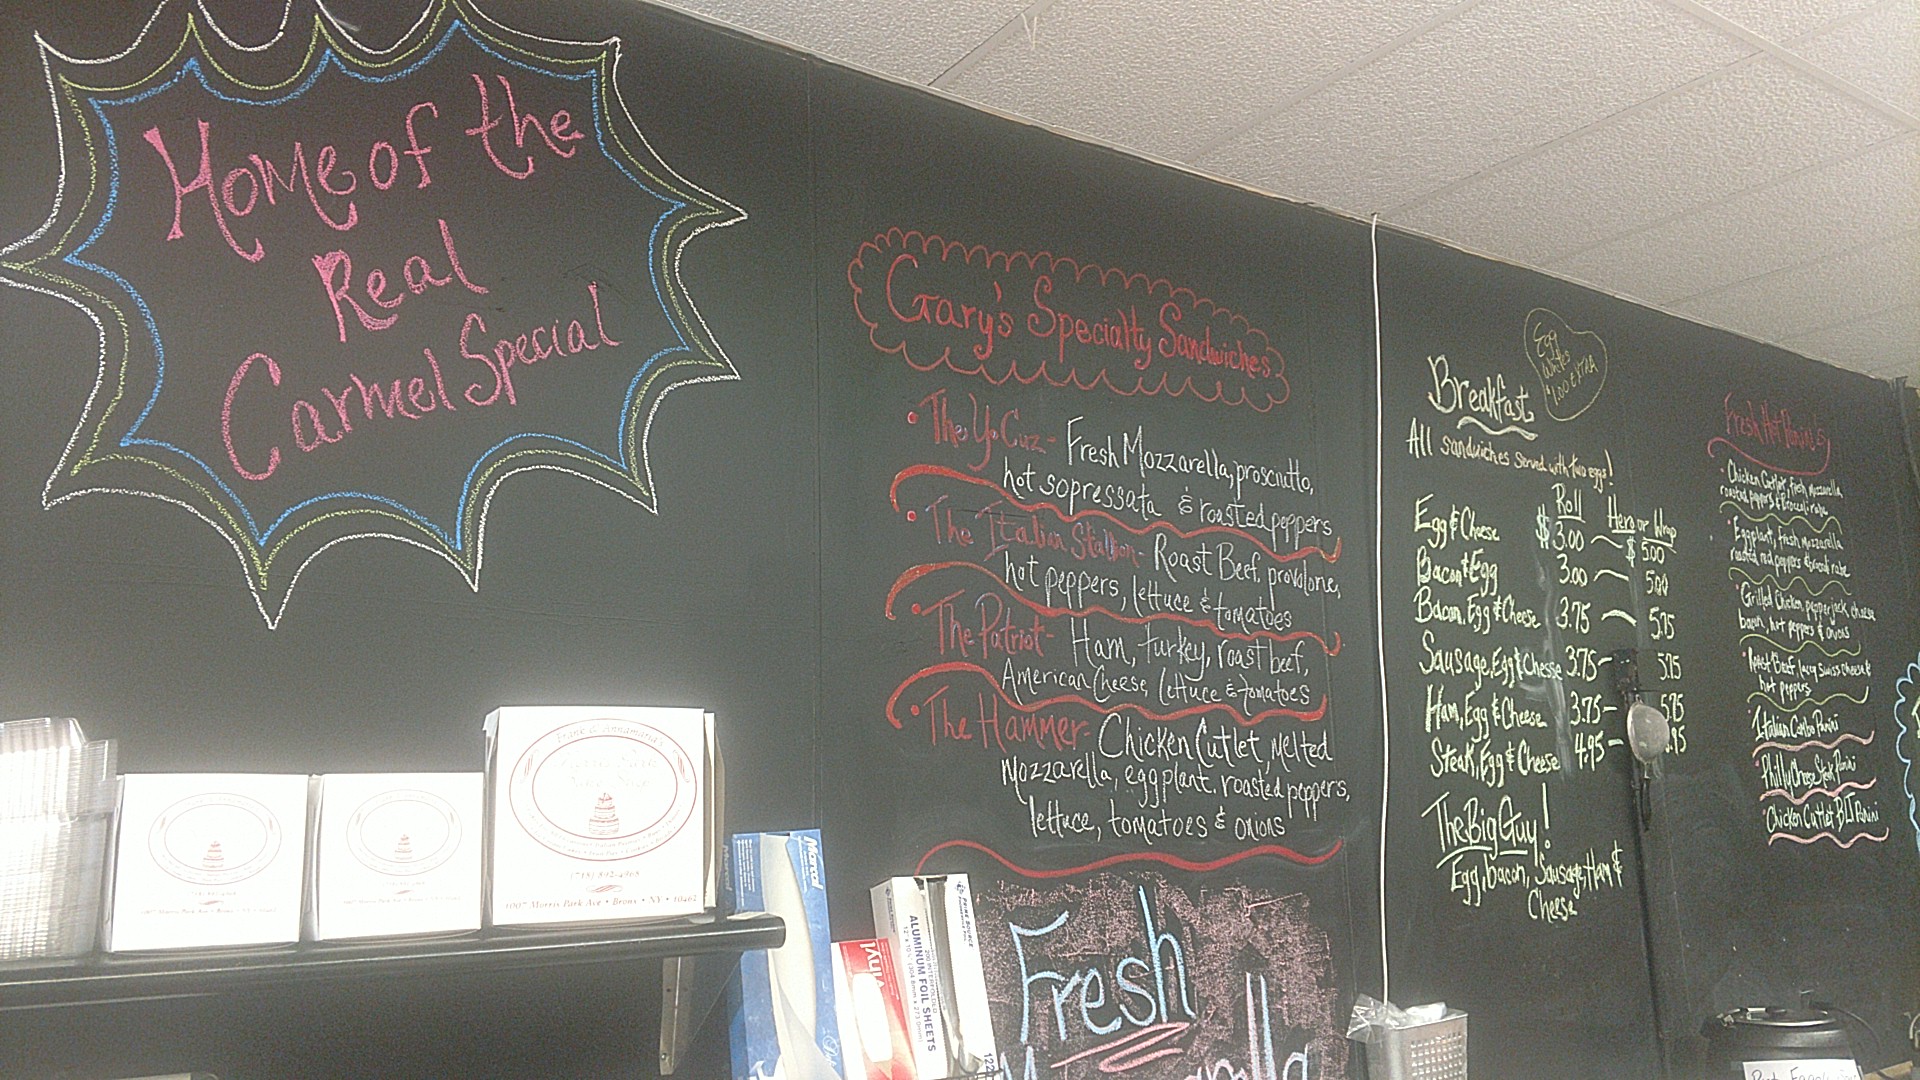 Home of the
Real
Carmel Special
Gary's Specialty Sandwiches
• The Yo Cuz - Fresh Mozzarella, prosciutto,
hot sopressata & roasted peppers
• The Italian Stallion - Roast Beef, provolone,
hot peppers, lettuce & tomatoes
• The Patriot - Ham, turkey, roast beef,
American Cheese, lettuce & tomatoes
• The Hammer - Chicken Cutlet, melted
mozzarella, eggplant, roasted peppers,
lettuce, tomatoes & onions
Fresh
Egg
Whites
$1.00 extra
Breakfast
All sandwiches served with two eggs!
Roll Hero or Wrap
Egg & Cheese $3.00 $5.00
Bacon & Egg 3.00 5.00
Bacon, Egg & Cheese 3.75 5.75
Sausage, Egg & Cheese 3.75 5.75
Ham, Egg & Cheese 3.75 5.75
Steak, Egg & Cheese 4.95 .95
The Big Guy!
Egg, bacon, Sausage, Ham &
Cheese
Fresh Hot Panini's
• Chicken Cutlet, fresh mozzarella,
roasted peppers & Broccoli rabe
• Eggplant, fresh mozzarella
roasted red peppers & broccoli rabe
• Grilled Chicken, pepperjack cheese
bacon, hot peppers & onions
• Roast Beef, lacey swiss cheese &
hot peppers
• Italian Combo Panini
• Philly Cheese Steak Panini
• Chicken Cutlet BLT Panini
Frank & Annamaria's
Morris Park
Bake Shop
(718) 892-4968
1007 Morris Park Ave • Bronx • NY • 10462
Marcal
ALUMINUM FOIL SHEETS
PRIME SOURCE